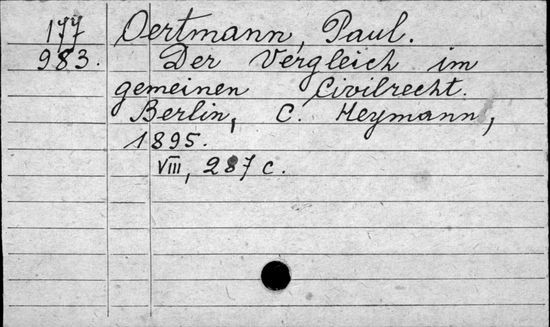 177 Oertmann, Paul.
983. Der Vergleich im
gemeinen Civilrecht.
Berlin, C. Heymann,
1895.
VIII, 287 c.